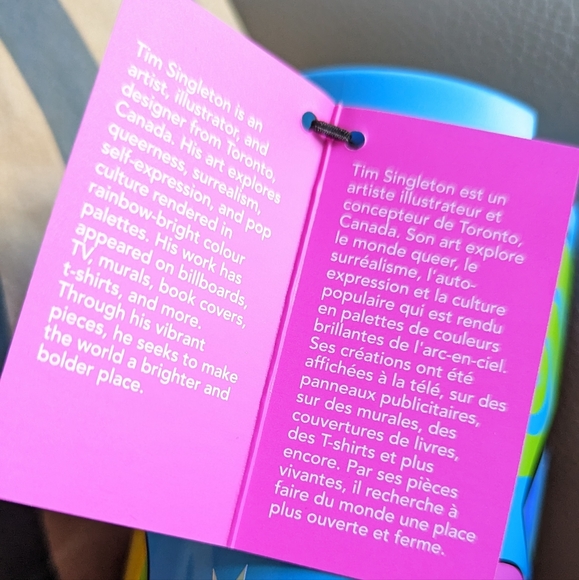 Tim Singleton is an
artist, illustrator, and
designer from Toronto,
Canada. His art explores
queerness, surrealism,
self-expression, and pop
culture rendered in
rainbow-bright colour
palettes. His work has
appeared on billboards,
TV, murals, book covers,
t-shirts, and more.
Through his vibrant
pieces, he seeks to make
the world a brighter and
bolder place.
Tim Singleton est un
artiste illustrateur et
concepteur de Toronto,
Canada. Son art explore
le monde queer, le
surréalisme, l'auto-
expression et la culture
populaire qui est rendu
en palettes de couleurs
brillantes de l'arc-en-ciel.
Ses créations ont été
affichées à la télé, sur des
panneaux publicitaires,
sur des murales, des
couvertures de livres,
des T-shirts et plus
encore. Par ses pièces
vivantes, il recherche à
faire du monde une place
plus ouverte et ferme.